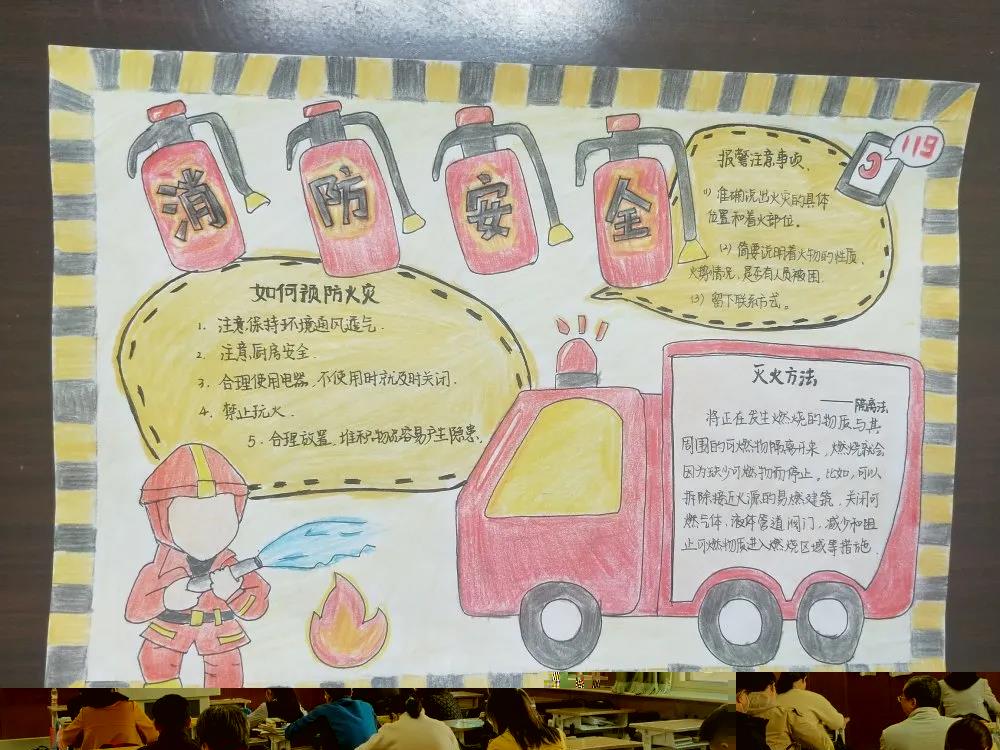 消防安全
119
报警注意事项
(1) 准确说出火灾的具体
位置和着火部位。
(2) 简要说明着火物的性质、
火势情况，是否有人员被困。
(3) 留下联系方式。
如何预防火灾
1. 注意保持环境通风透气.
2. 注意厨房安全.
3. 合理使用电器,不使用时就及时关闭.
4. 禁止玩火.
5. 合理放置、堆积物品容易产生隐患.
灭火方法
——隔离法
将正在发生燃烧的物质与其
周围的可燃物隔离开来，燃烧就会
因为缺少可燃物而停止。比如，可以
拆除接近火源的易燃建筑，关闭可
燃气体、液体管道阀门，减少和阻
止可燃物质进入燃烧区域等措施.